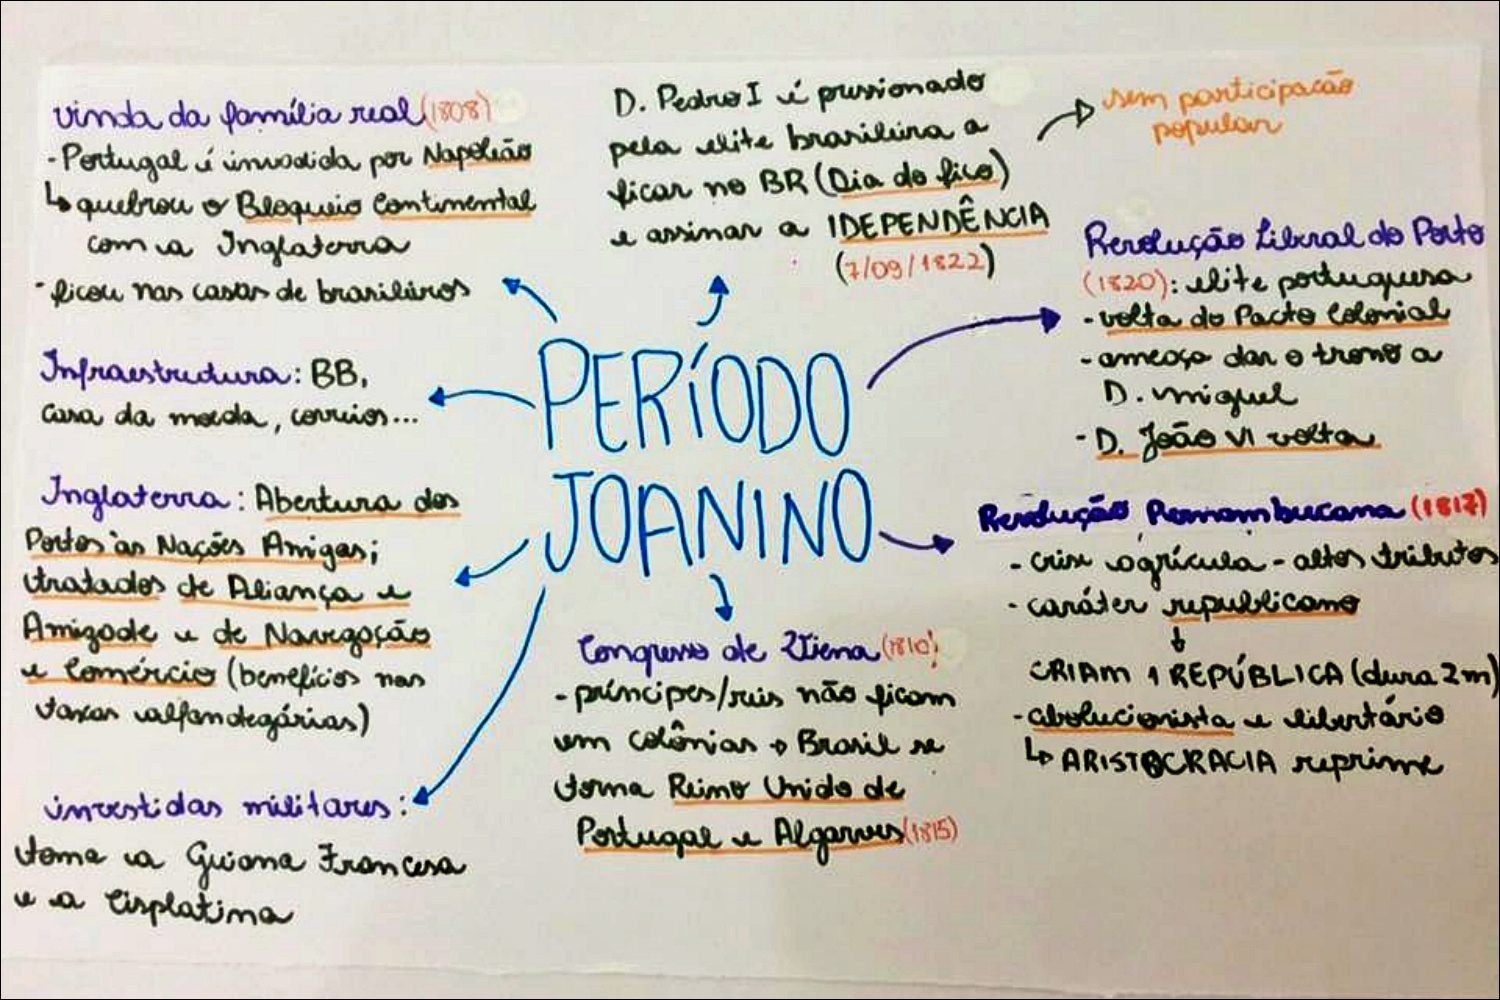 PERÍODO
JOANINO
vinda da família real (1808)
- Portugal é invadida por Napoleão
↳ quebrou o Bloqueio Continental
com a Inglaterra
- ficou nas casas de brasileiros
Infraestrutura: BB,
casa da moeda, correios...
Inglaterra: Abertura dos
Portos às Nações Amigas;
tratados de Aliança e
Amizade e de Navegação
e Comércio (benefícios nas
taxas alfandegárias)
investidas militares:
toma a Guiana Francesa
e a Cisplatina
D. Pedro I é pressionado
pela elite brasileira a
ficar no BR (Dia do fico)
e assinar a IDEPENDÊNCIA
(7/09/1822)
sem participação
popular
Revolução Liberal do Porto
(1820): elite portuguesa
- volta do Pacto Colonial
- ameaça dar o trono a
D. Miguel
- D. João VI volta
Revolução Pernambucana (1817)
- crise agrícula - altos tributos
- caráter republicano
↓
CRIAM 1 REPÚBLICA (dura 2m)
- abolucionista e libertário
↳ ARISTOCRACIA reprime
Congresso de Viena (1810)
- príncipes/reis não ficam
em colônias → Brasil se
torna Reino Unido de
Portugal e Algarves (1815)